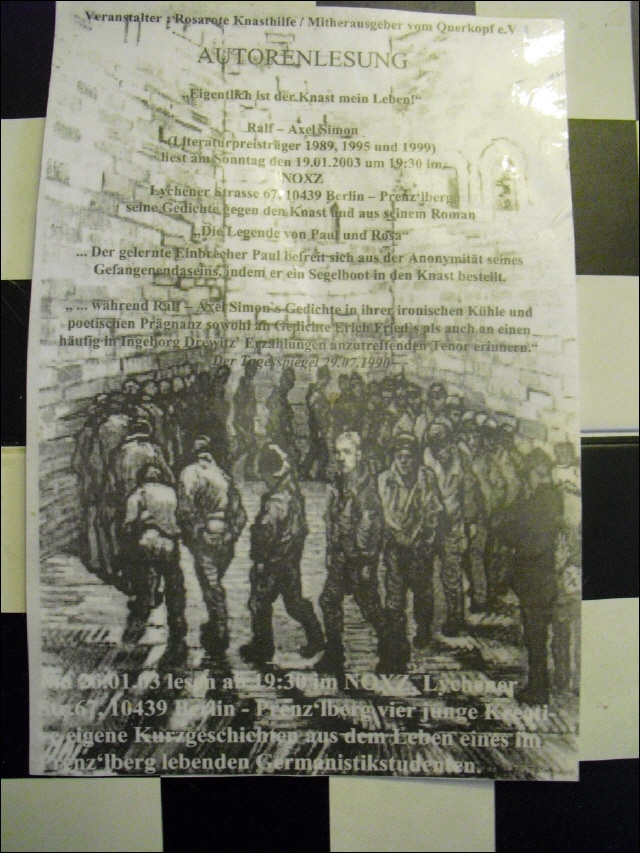 Veranstalter : Rosarote Knasthilfe / Mitherausgeber vom Querkopf e.V
AUTORENLESUNG
„Eigentlich ist der Knast mein Leben!“
Ralf – Axel Simon
(Literaturpreisträger 1989, 1995 und 1999)
liest am Sonntag den 19.01.2003 um 19:30 im
NOXZ
Lychener Strasse 67, 10439 Berlin – Prenz‘lberg
seine Gedichte gegen den Knast und aus seinem Roman
„Die Legende von Paul und Rosa“
... Der gelernte Einbrecher Paul befreit sich aus der Anonymität seines
Gefangenendaseins, indem er ein Segelboot in den Knast bestellt.
„ ... während Ralf – Axel Simon`s Gedichte in ihrer ironischen Kühle und
poetischen Prägnanz sowohl an Gedichte Erich Fried`s als auch an einen
häufig in Ingeborg Drewitz‘ Erzählungen anzutreffenden Tenor erinnern.“
Der Tagesspiegel 29.07.1990
26.01.03 lesen ab 19:30 im NOXZ, Lychener
Str.67, 10439 Berlin - Prenz‘lberg vier junge Kreati-
e eigene Kurzgeschichten aus dem Leben eines im
renz‘lberg lebenden Germanistikstudenten.